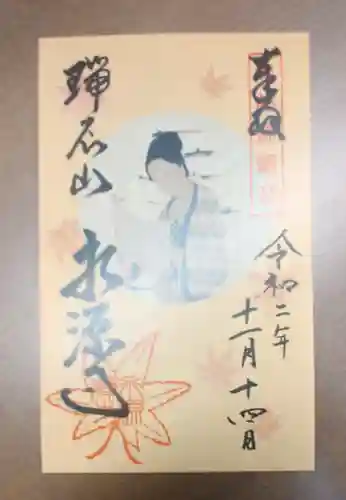 奉拝
令和二年
十一月十四日
瑞石山
永源寺